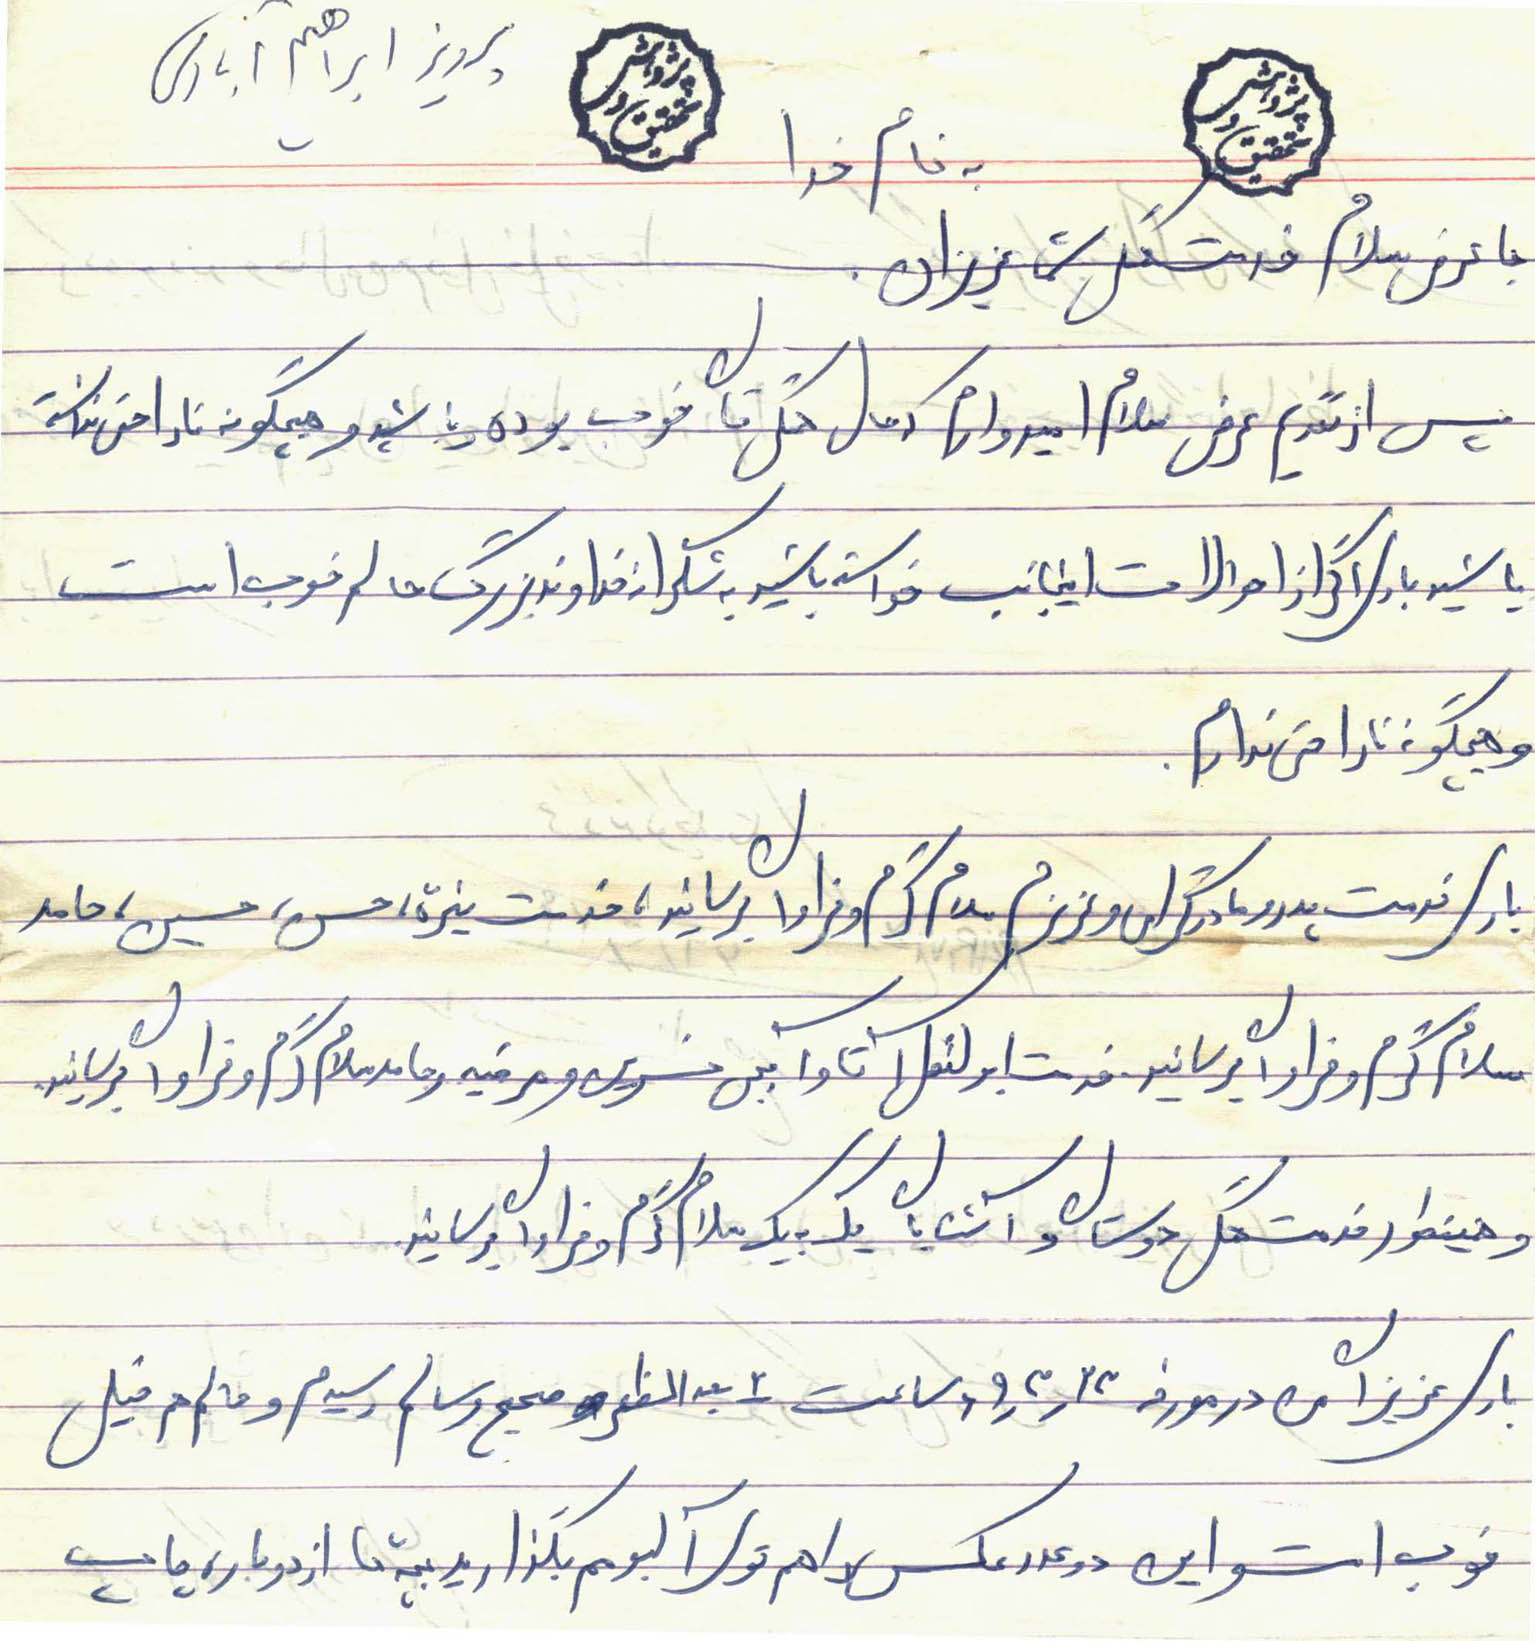 پرویز ابراهیم آبادی
پژوهش و تحقیق
پژوهش و تحقیق
به نام خدا
با عرض سلام خدمت همگی شما عزیزان.
پس از تقدیم عرض سلام امیدوارم که حال همگی تان خوب بوده باشید و هیچگونه ناراحتی نداشته
باشید باری اگر از احوالات اینجانب خواسته باشید به شکر از خداوند بزرگ حالم خوب است
و هیچگونه ناراحتی ندارم.
باری خدمت پدر و مادر گرامی و عزیزم سلام گرم و فراوان برسانید، خدمت منیژه، حسن، حسین، حامد
سلام گرم و فراوان برسانید. خدمت ابولفضل آقا و آبجی مرضیه و حامد سلام گرم و فراوان برسانید.
و همینطور خدمت همگی دوستان و آشنایان یک به یک سلام گرم و فراوان برسانید.
باری عزیزان من در مورخه ساعت ۲ بعد الظهر صحیح و سالم رسیدم و حالم هم خیلی
خوب است و این دو عدد عکس را هم توی آلبومم بگذارید بچه ها از دوباره چاپ